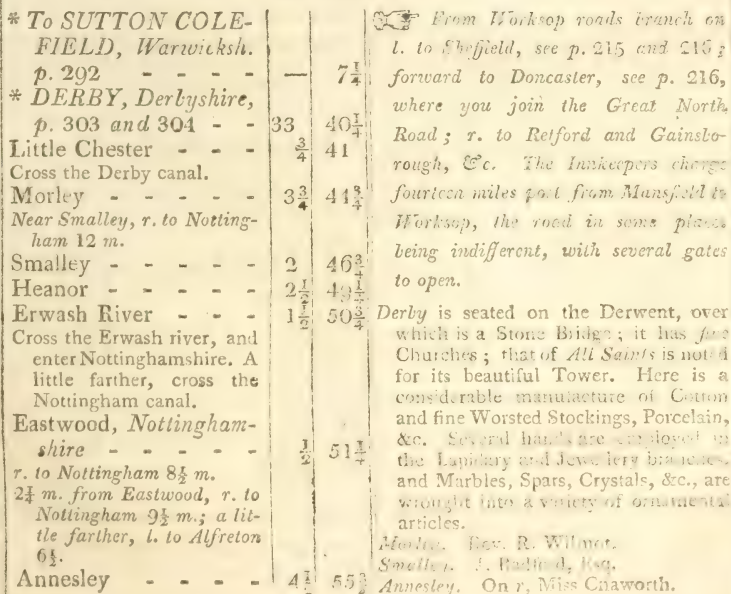 * To SUTTON COLE-
FIELD, Warwicksh.
p. 292 - - - - — 7¼
* DERBY, Derbyshire,
p. 303 and 304 - - 33 40¼
Little Chester - - - ¾ 41
Cross the Derby canal.
Morley - - - - 3¾ 44¾
Near Smalley, r. to Notting-
ham 12 m.
Smalley - - - - 2 46¾
Heanor - - - - - 2½ 49¼
Erwash River - - - 1½ 50¾
Cross the Erwash river, and
enter Nottinghamshire. A
little farther, cross the
Nottingham canal.
Eastwood, Nottingham-
shire - - - - - ½ 51¼
r. to Nottingham 8½ m.
2¼ m. from Eastwood, r. to
Nottingham 9½ m.; a lit-
tle farther, l. to Alfreton
6½.
Annesley - - - - 4½ 55¾
☞ From Worksop roads branch on
l. to Sheffield, see p. 215 and 216;
forward to Doncaster, see p. 216,
where you join the Great North
Road; r. to Retford and Gainsbo-
rough, &c. The Innkeepers charge
fourteen miles post from Mansfield to
Worksop, the road in some places
being indifferent, with several gates
to open.
Derby is seated on the Derwent, over
which is a Stone Bridge; it has five
Churches; that of All Saints is noted
for its beautiful Tower. Here is a
considerable manufacture of Cotton
and fine Worsted Stockings, Porcelain,
&c. Several hands are employed in
the Lapidary and Jewellery branches,
and Marbles, Spars, Crystals, &c., are
wrought into a variety of ornamental
articles.
Morley. Rev. R. Wilmot.
Smalley. J. Radford, Esq.
Annesley. On r, Miss Chaworth.